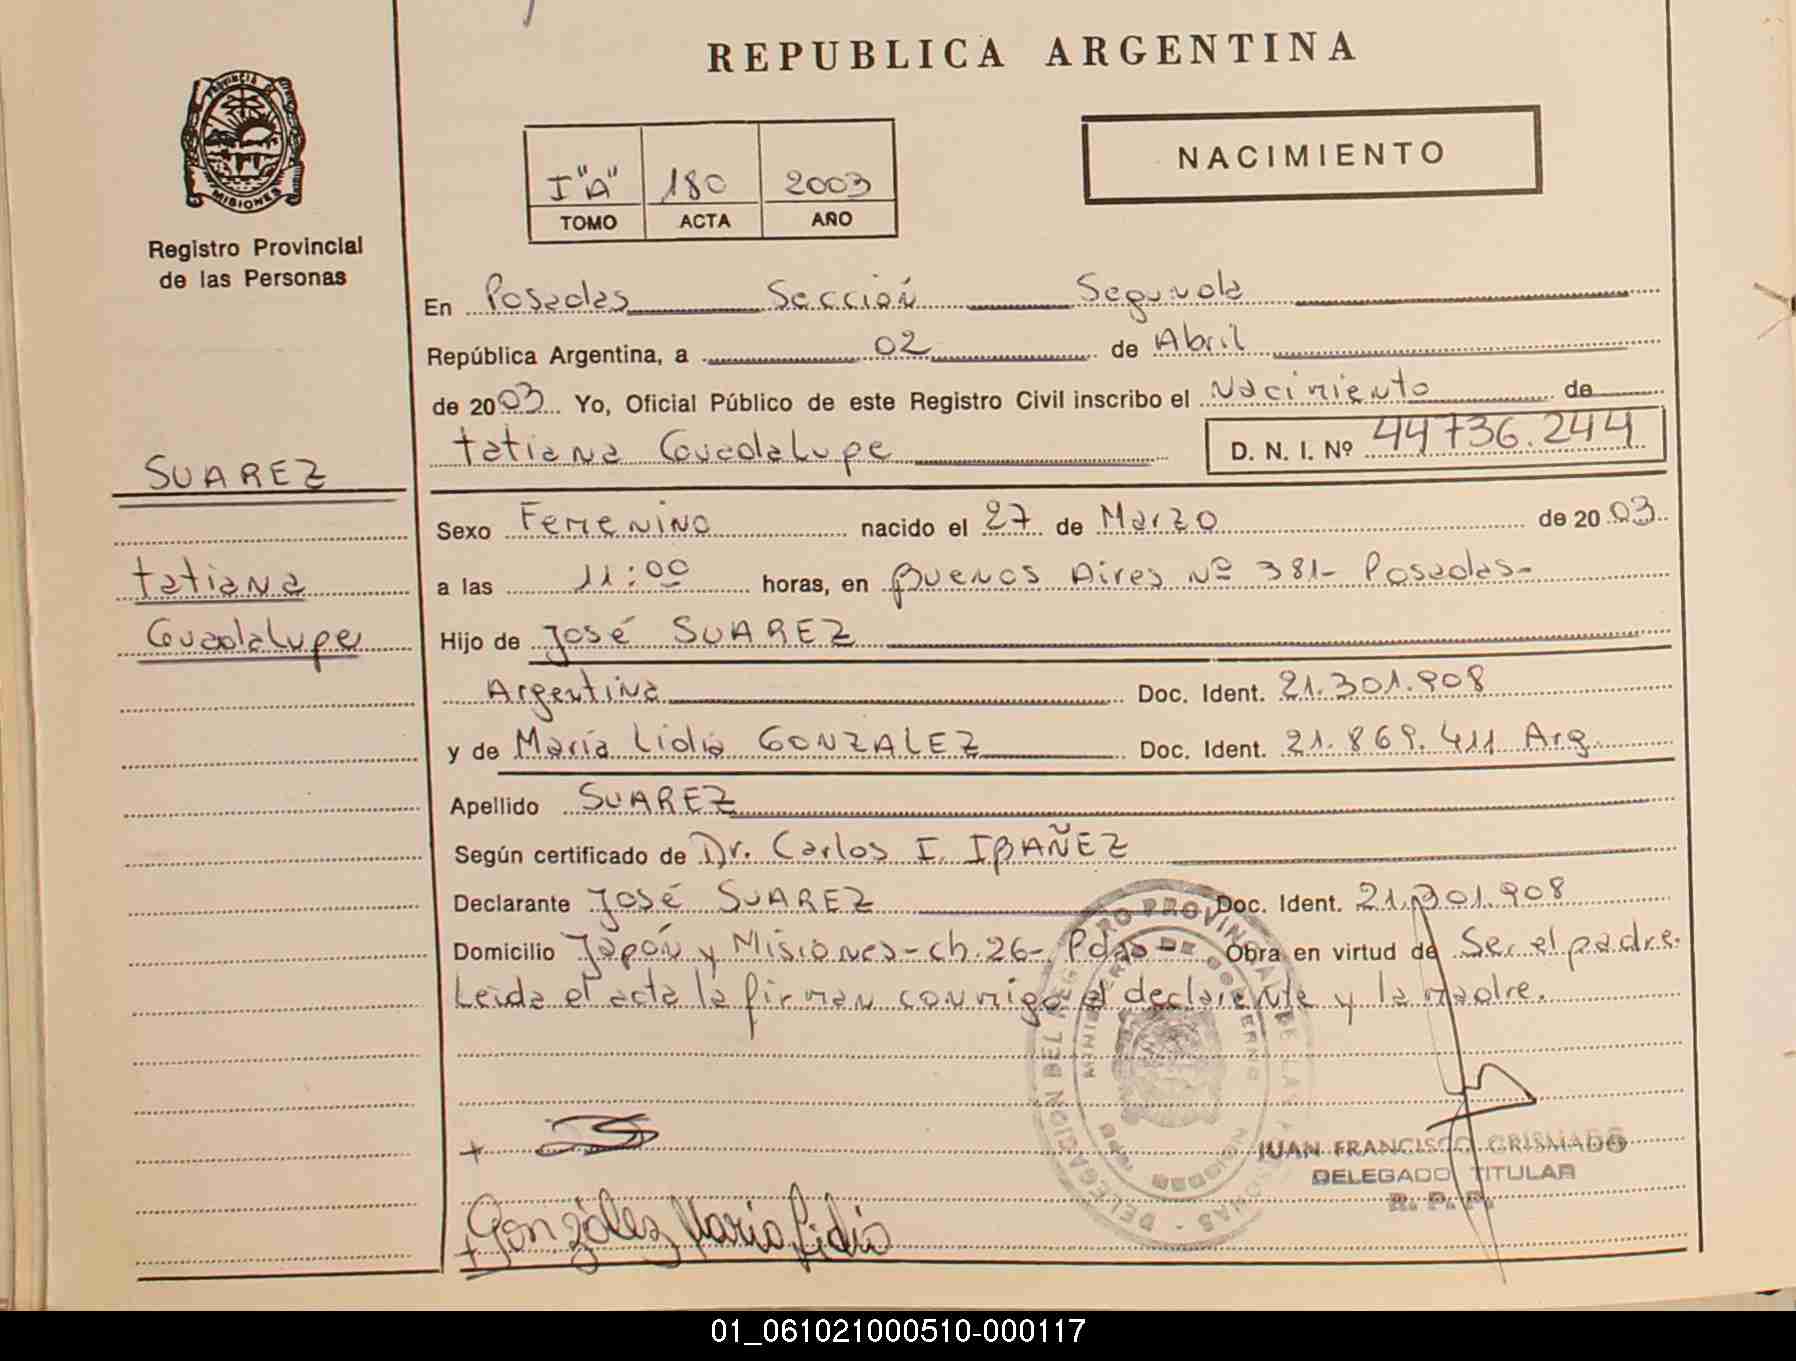 REPUBLICA ARGENTINA
PROVINCIA DE
MISIONES
Registro Provincial
de las Personas
NACIMIENTO
I "A" 180 2003
TOMO ACTA AÑO
En Posadas Sección Segunda
República Argentina, a 02 de Abril
de 2003 Yo, Oficial Público de este Registro Civil inscribo el Nacimiento de
Tatiana Guadalupe D. N. I. Nº 44736.244
SUAREZ
Tatiana
Guadalupe
Sexo Femenino nacido el 27 de Marzo de 2003
a las 11:00 horas, en Buenos Aires Nº 381- Posadas-
Hijo de José SUAREZ
Argentina Doc. Ident. 21.301.908
y de María Lidia GONZALEZ Doc. Ident. 21.869.411 Arg.
Apellido SUAREZ
Según certificado de Dr. Carlos I. IBAÑEZ
Declarante José SUAREZ Doc. Ident. 21.301.908
Domicilio Japón y Misiones - Ch. 26 -. Pdas - Obra en virtud de Ser el padre.
Leída el acta la firman conmigo el declarante y la madre.
JUAN FRANCISCO GRISMADO
DELEGADO TITULAR
R. P. P.
González Maria Lidia
01_061021000510-000117